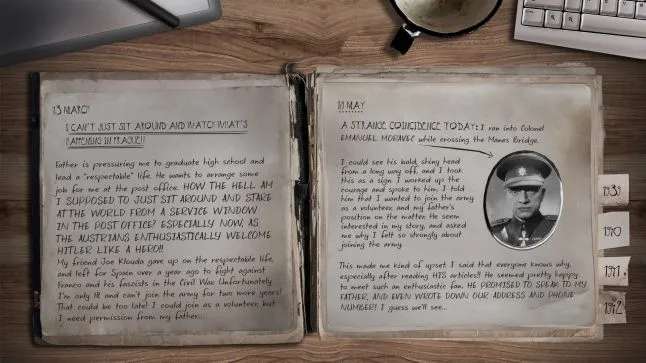 13 MARCH
I CAN'T JUST SIT AROUND AND WATCH WHAT'S
HAPPENING IN PRAGUE!!
Father is pressuring me to graduate high school and
lead a "respectable" life. He wants to arrange some
job for me at the post office. HOW THE HELL AM
I SUPPOSED TO JUST SIT AROUND AND STARE
AT THE WORLD FROM A SERVICE WINDOW
IN THE POST OFFICE? ESPECIALLY NOW, AS
THE AUSTRIANS ENTHUSIASTICALLY WELCOME
HITLER LIKE A HERO!!
My friend Joe Klouda gave up on the respectable life,
and left for Spain over a year ago to fight against
Franco and his fascists in the Civil War. Unfortunately
I'm only 18 and can't join the army for two more years!
That could be too late! I could join as a volunteer, but
I need permission from my father...
10 MAY
A STRANGE COINCIDENCE TODAY: I ran into Colonel
EMANUEL MORAVEC while crossing the Manes Bridge.
I could see his bald, shiny head
from a long way off, and I took
this as a sign. I worked up the
courage and spoke to him. I told
him that I wanted to join the army
as a volunteer, and my father's
position on the matter. He seem
interested in my story, and asked
me why I felt so strongly about
joining the army.
This made me kind of upset. I said that everyone knows why,
especially after reading HIS articles!! He seemed pretty happy
to meet such an enthusiastic fan. HE PROMISED TO SPEAK TO MY
FATHER, AND EVEN WROTE DOWN OUR ADDRESS AND PHONE
NUMBER!! I guess we'll see...
1939
1940
1941
1942